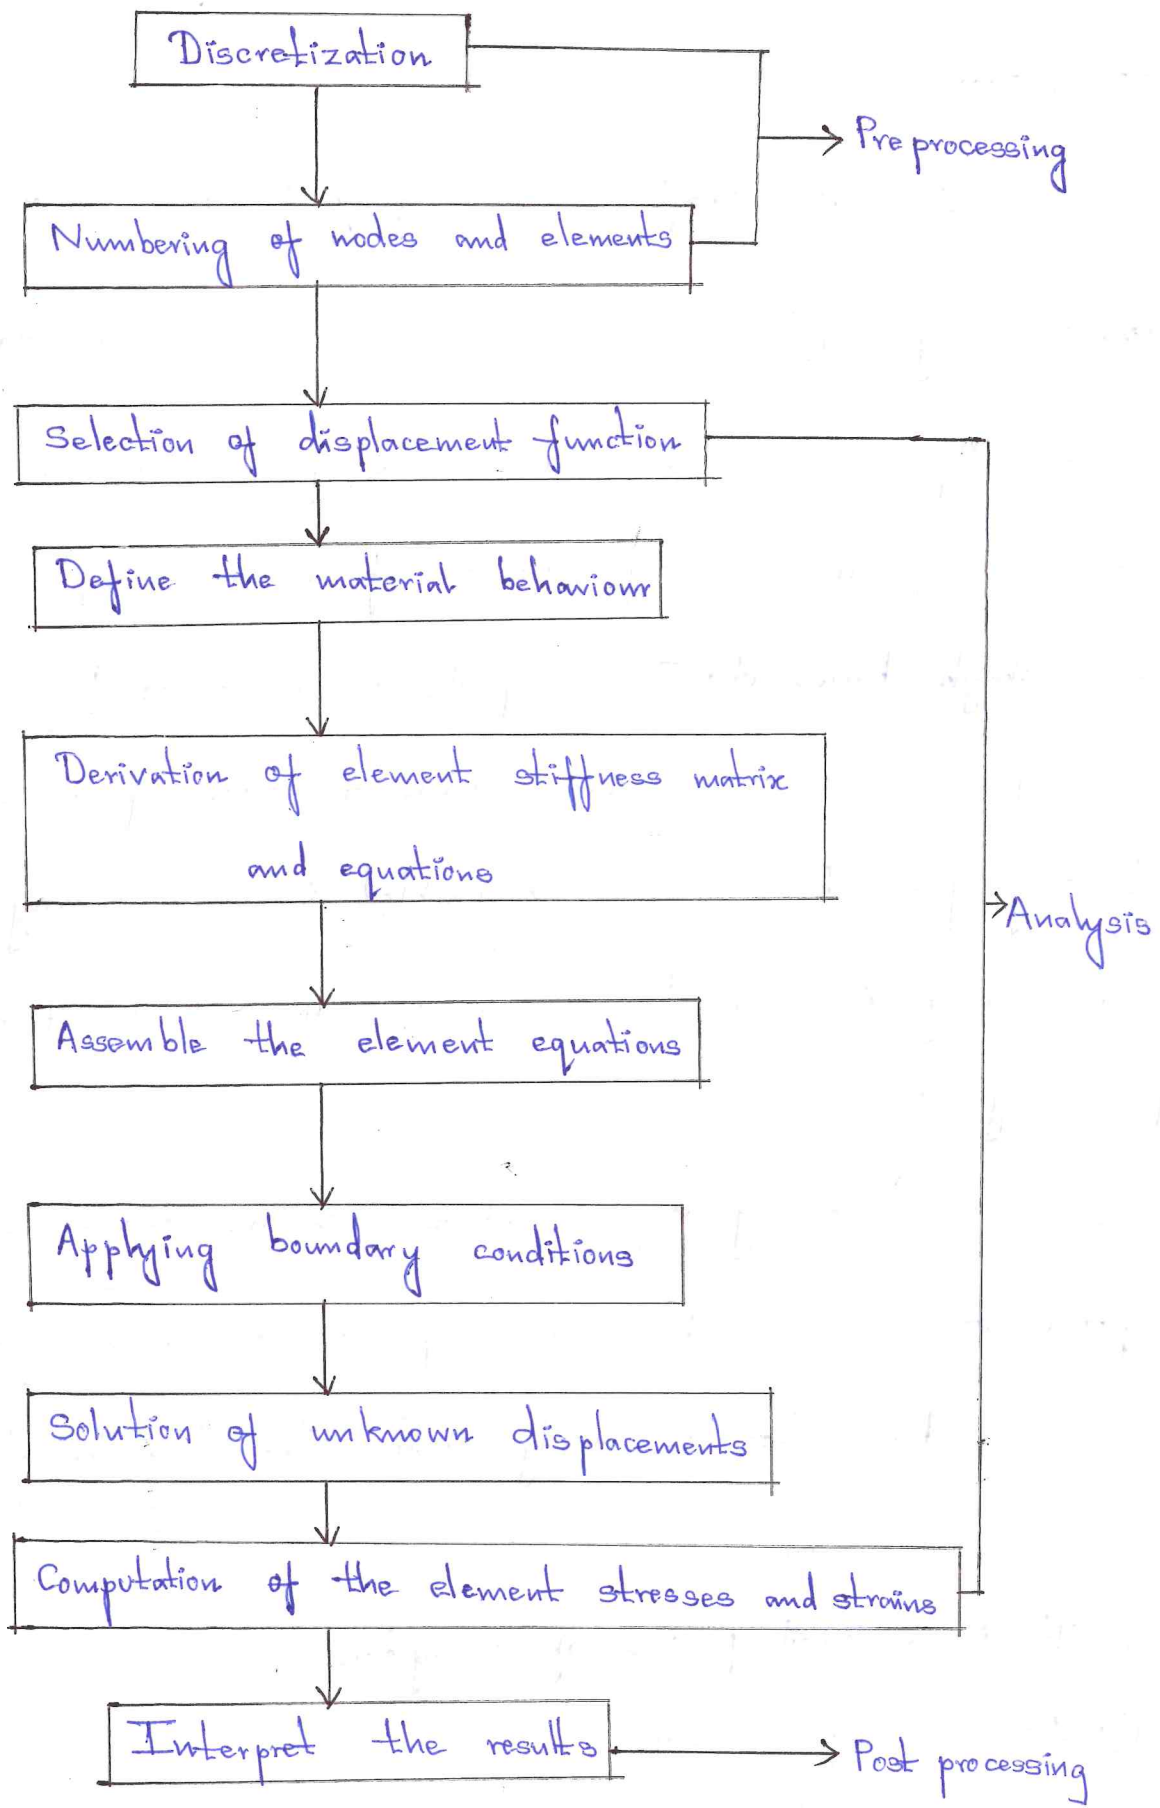 Discretization
Pre processing
Numbering of nodes and elements
Selection of displacement function
Define the material behaviour
Derivation of element stiffness matrix
and equations
Analysis
Assemble the element equations
Applying boundary conditions
Solution of unknown displacements
Computation of the element stresses and strains
Interpret the results
Post processing